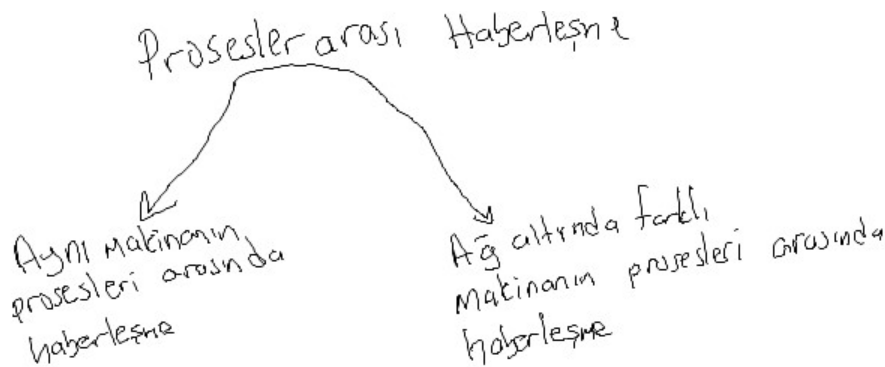 Prosesler arası Haberleşme
Aynı makinanın
prosesleri arasında
haberleşme
Ağ altında farklı
makinanın prosesleri arasında
haberleşme